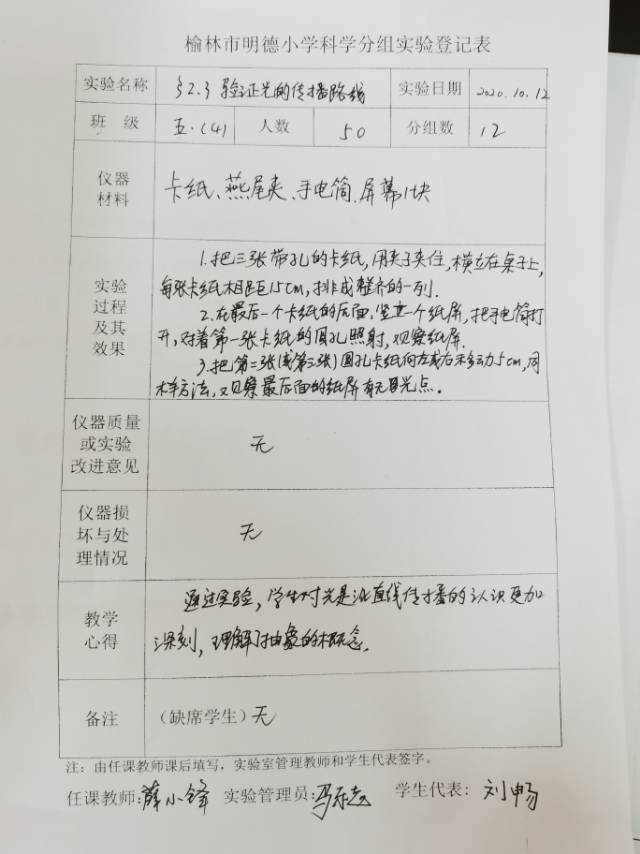 榆林市明德小学科学分组实验登记表
实验名称 §2.3 验证光的传播路线 实验日期 2020.10.12
班 级 五.(4) 人数 50 分组数 12
仪器
材料
卡纸、燕尾夹、手电筒、屏幕1块
实验
过程
及其
效果
1.把三张带孔的卡纸,用夹子夹住,横立在桌子上,
每张卡纸相距15cm,排成整齐的一列.
2.在最后一个卡纸的后面,竖立一个纸屏,把手电筒打
开,对着第一张卡纸的圆孔照射,观察纸屏.
3.把第二张(或第三张)圆孔卡纸向左或右移动5cm,同
样方法,观察最后面的纸屏有无光点.
仪器质量
或实验
改进意见
无
仪器损
坏与处
理情况
无
教学
心得
通过实验,学生对光是沿直线传播的认识更加
深刻,理解了抽象的概念.
备注 (缺席学生)无
注:由任课教师课后填写,实验室管理教师和学生代表签字。
任课教师:薛小锋 实验管理员:冯 学生代表:刘畅